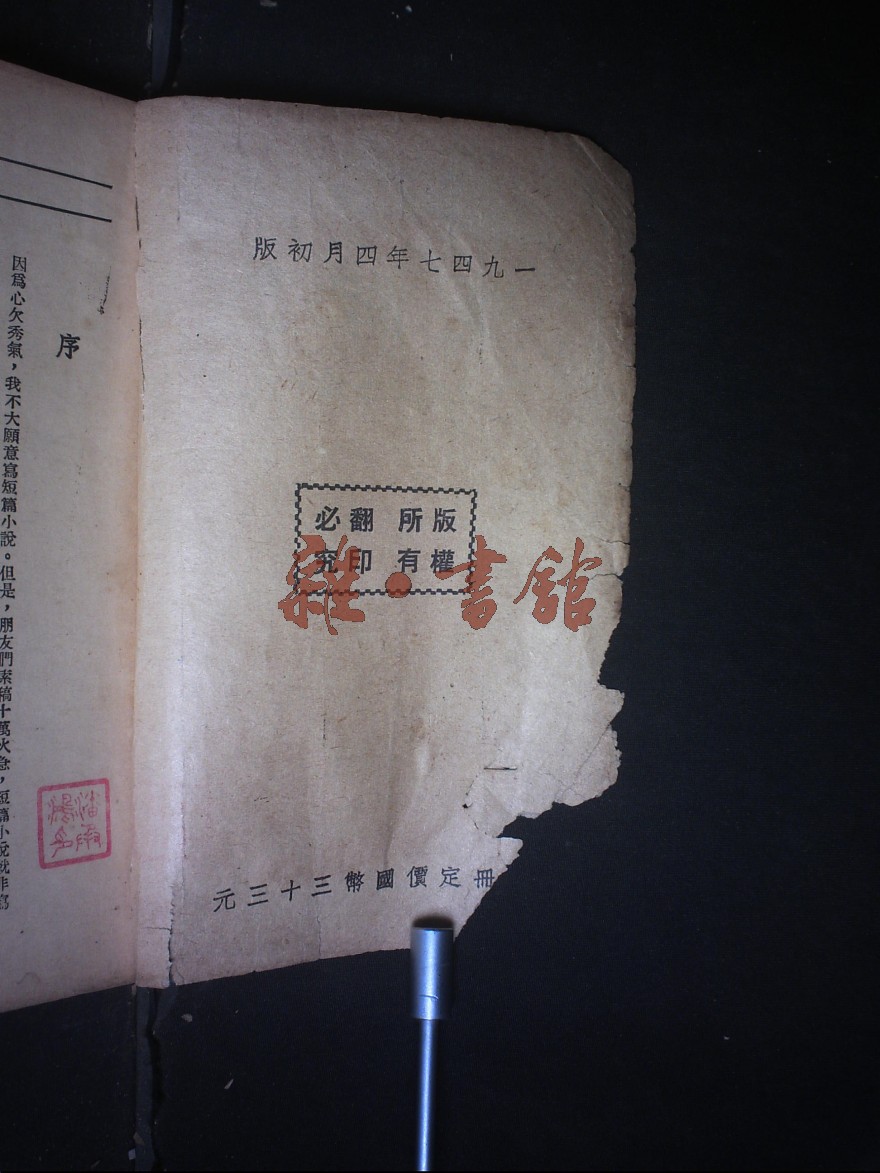 一九四七年四月初版
版權所有
翻印必究
冊定價國幣三十三元
雜·書館
序
因爲心欠秀氣，我不大願意寫短篇小說。但是，朋友們索稿十萬火急，短篇小說就非寫